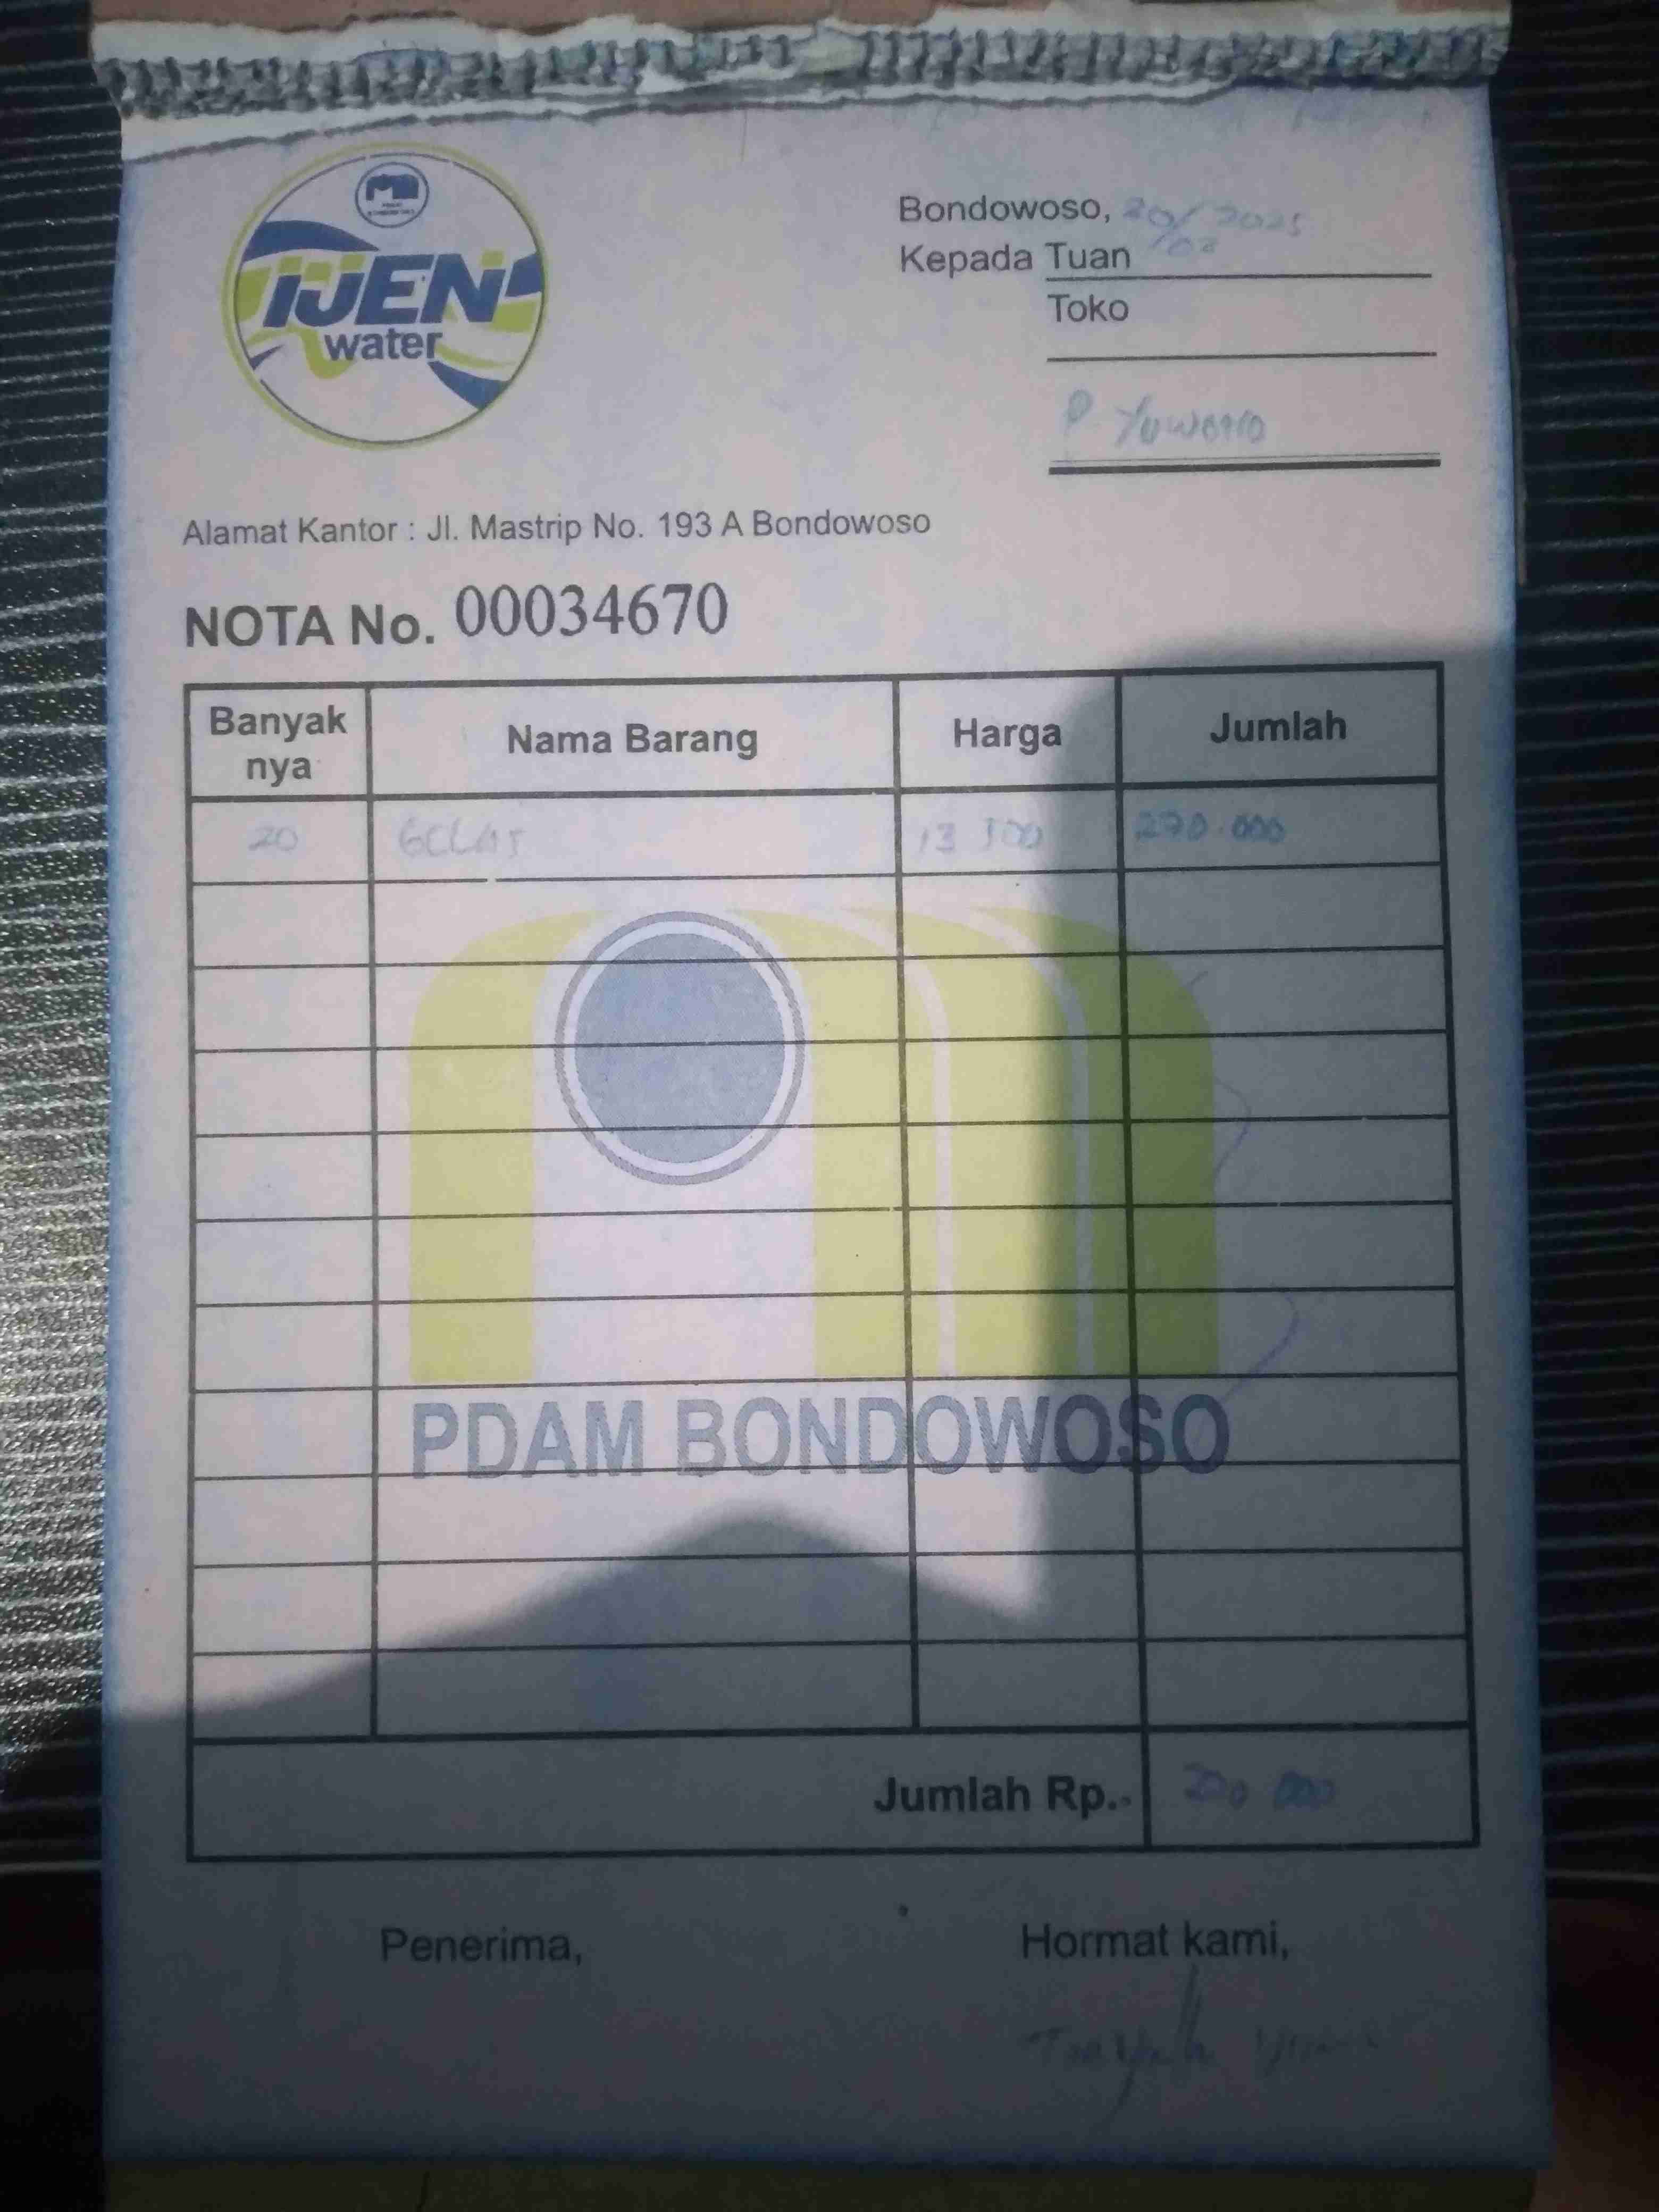 IJEN
water
Bondowoso, 20/02 2025
Kepada Tuan
Toko
P Yuwono
Alamat Kantor : Jl. Mastrip No. 193 A Bondowoso
NOTA No. 00034670
Banyak nya Nama Barang Harga Jumlah
20 GELAS 13 500 270.000
PDAM BONDOWOSO
Jumlah Rp. 270 000
Penerima, Hormat kami,